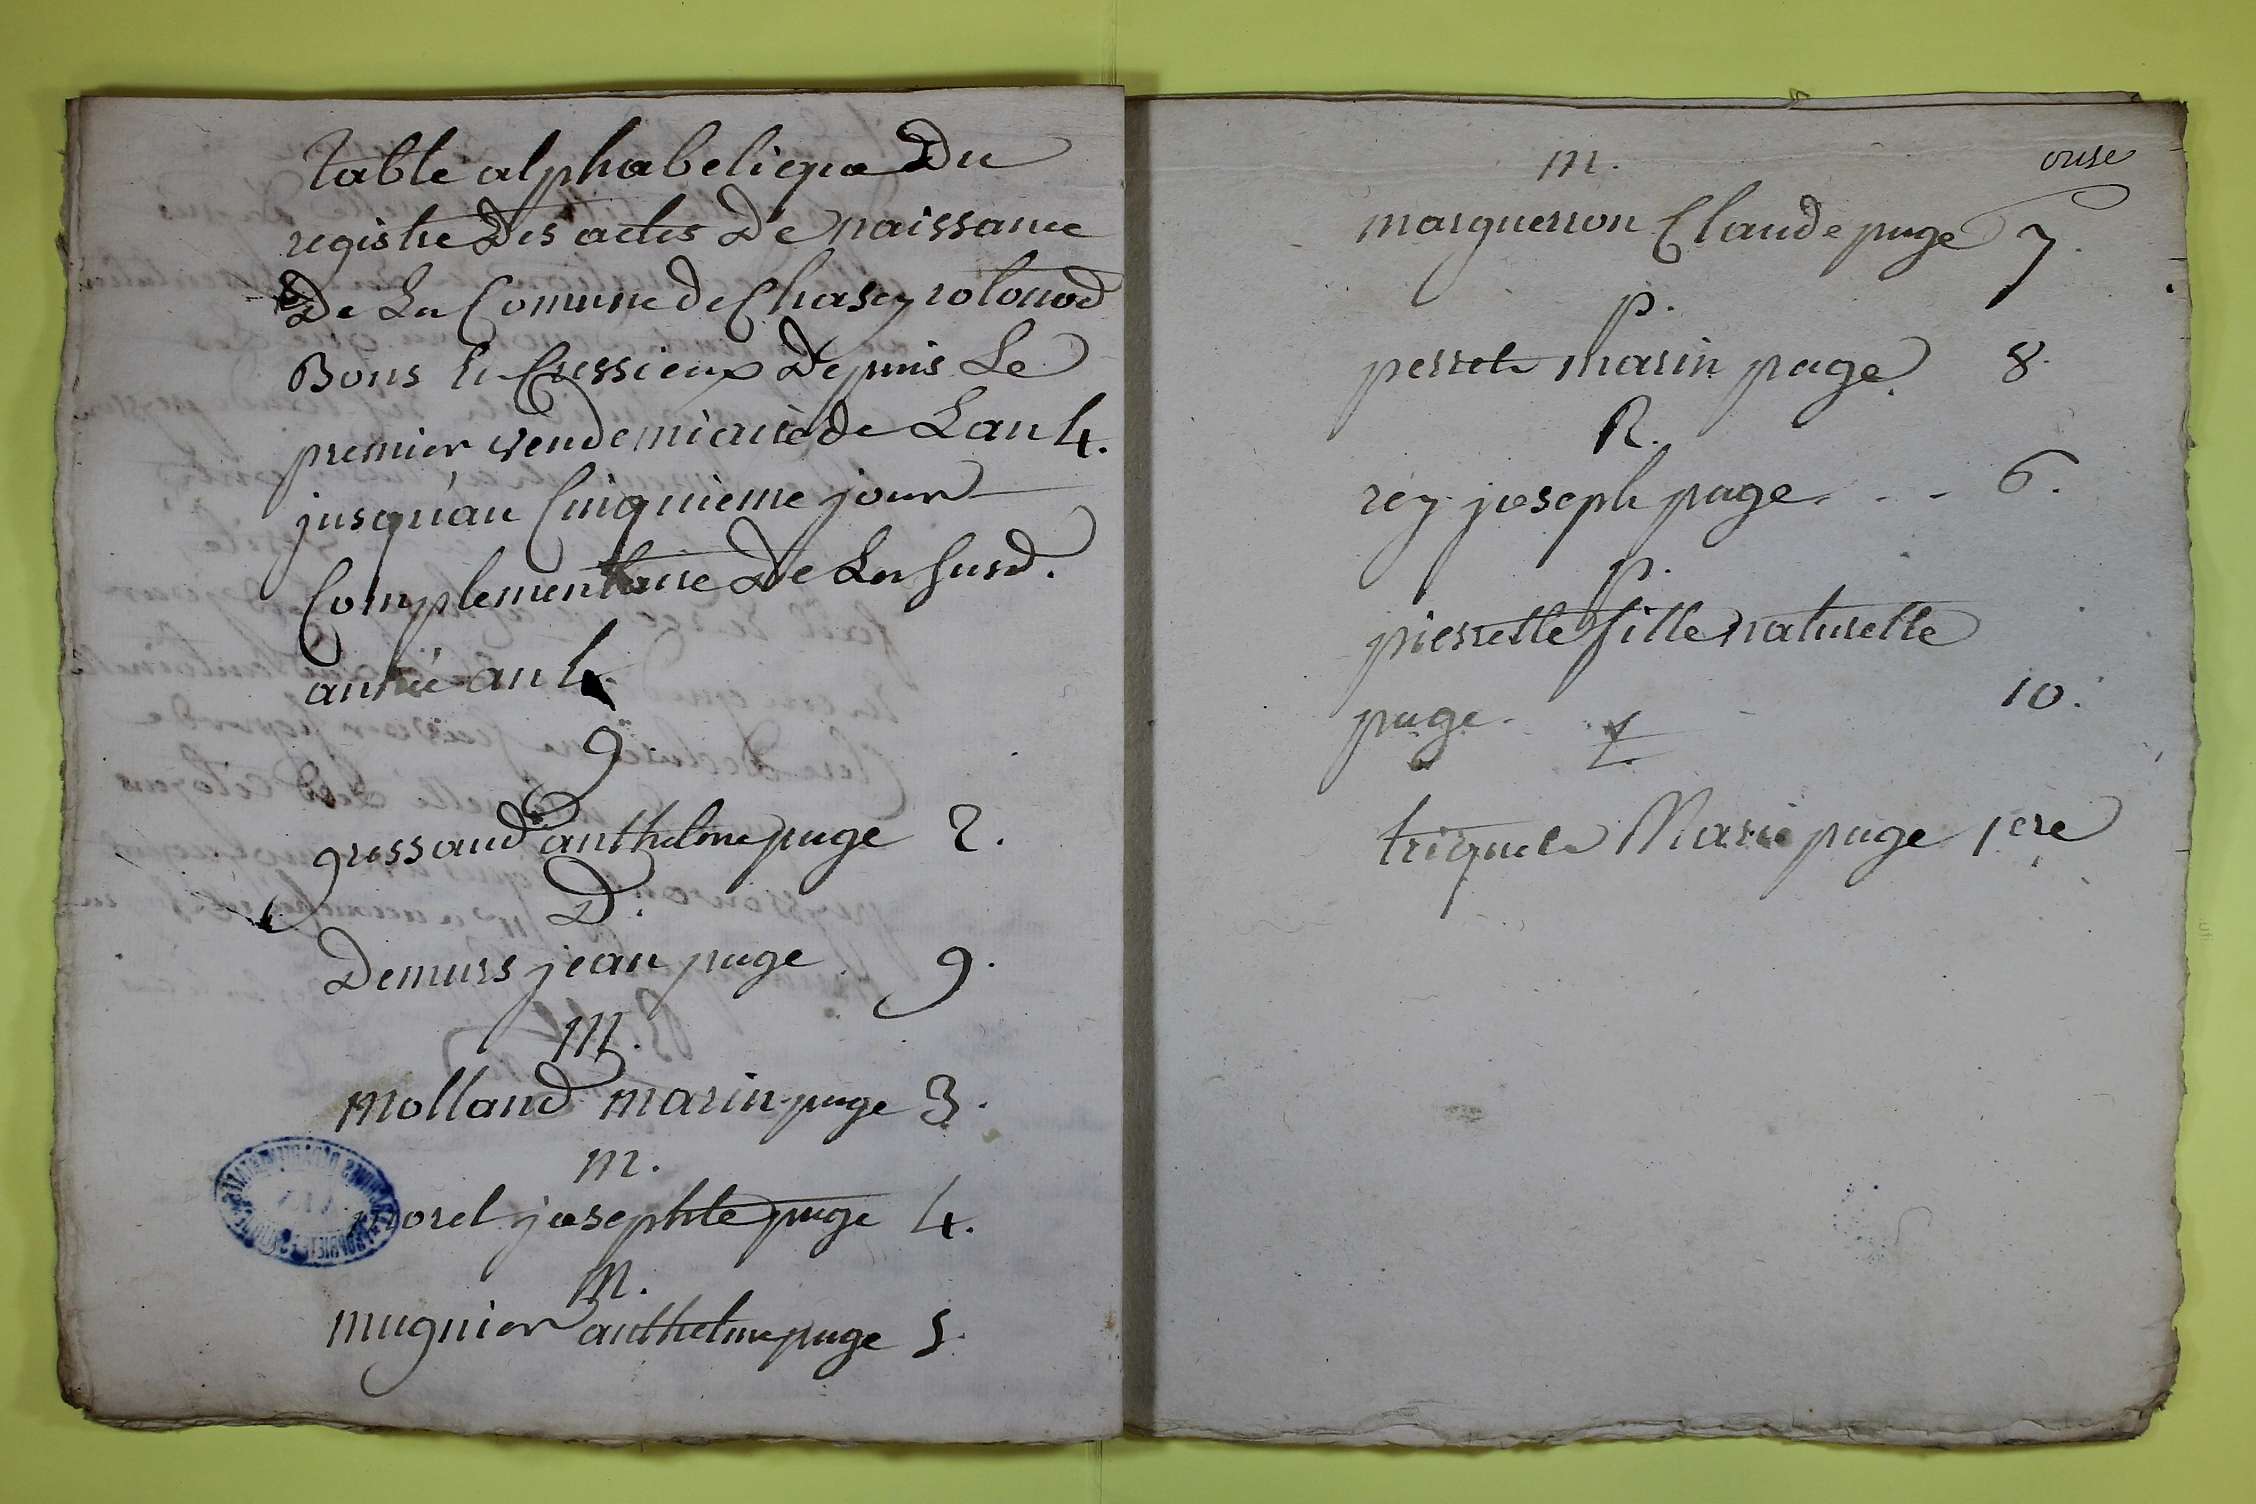 table alphabetique Du
registre Des actes De naissance
De La Comune de Chasey rotonod
Bons Et Cressieux Depuis Le
premier vendemiaire de Lan 4.
jusqu'au Cinquieme jour
Complementaire De La susd.
année an 4.
g.
grossand anthelme page 2.
D.
Demurs jean page 9.
M.
Molland marin page 3.
m.
morel josephte page 4.
m.
mugnier anthelme page 5.
onse
m.
marguerron Claude page 7.
p.
perret marin page 8.
R.
rey joseph page . . . 6.
p.
pierrette fille naturelle
page. 10.
t.
triquet Marie page 1ere